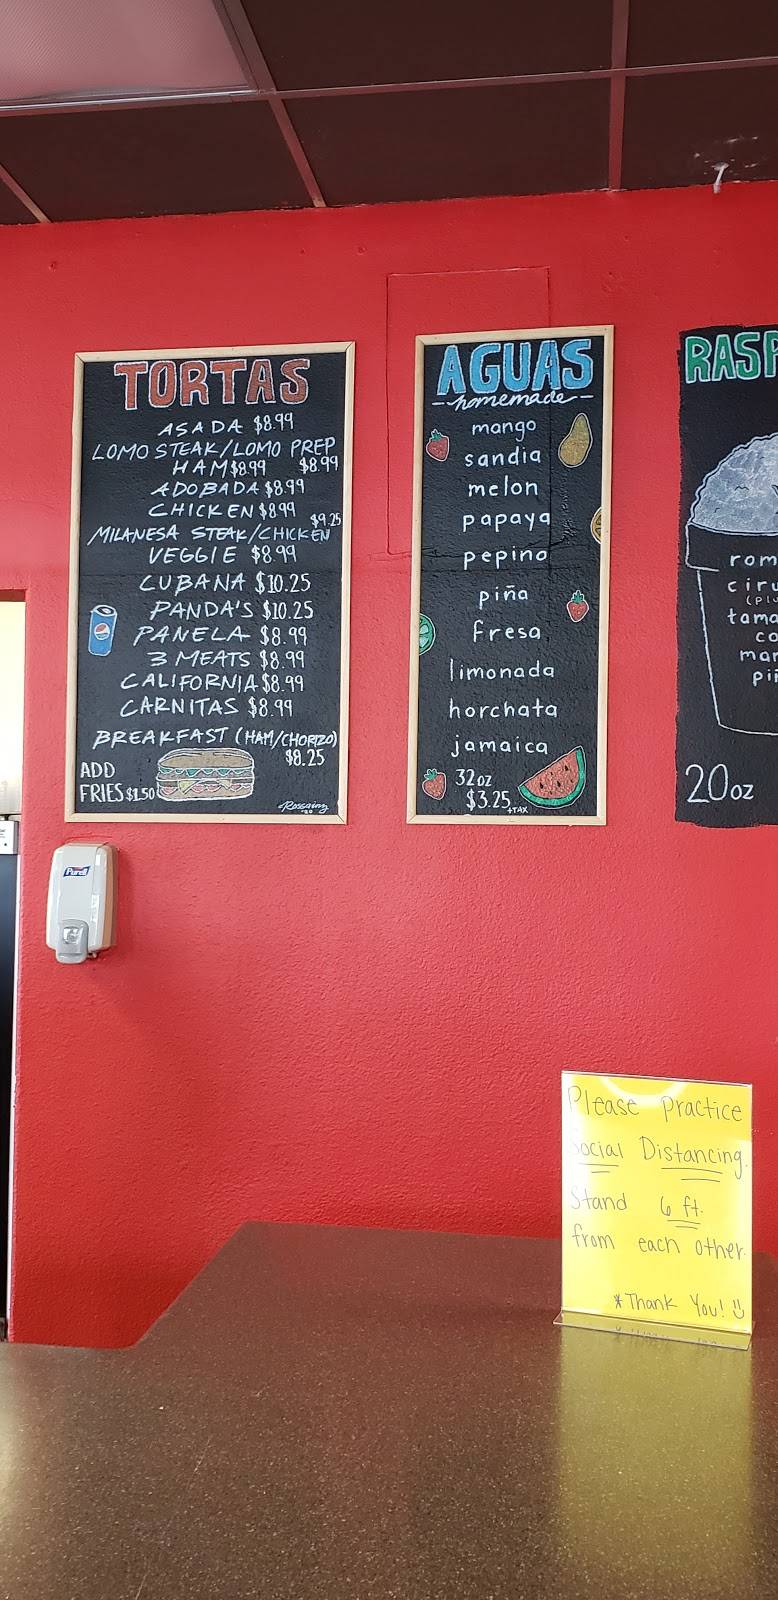 TORTAS
ASADA $8.99
LOMO STEAK/LOMO PREP
HAM $8.99 $8.99
ADOBADA $8.99
CHICKEN $8.99
$9.25
MILANESA STEAK/CHICKEN
VEGGIE $8.99
CUBANA $10.25
PANDA'S $10.25
PANELA $8.99
3 MEATS $8.99
CALIFORNIA $8.99
CARNITAS $8.99
BREAKFAST (HAM/CHORIZO)
$8.25
ADD
FRIES $1.50
AGUAS
homemade
mango
sandia
melon
papaya
pepino
piña
fresa
limonada
horchata
jamaica
32oz
$3.25 +TAX
RASP
rom
ciru
tama
co
man
piñ
20oz
Purell
Please practice
Social Distancing.
Stand 6 ft.
from each other.
*Thank You!